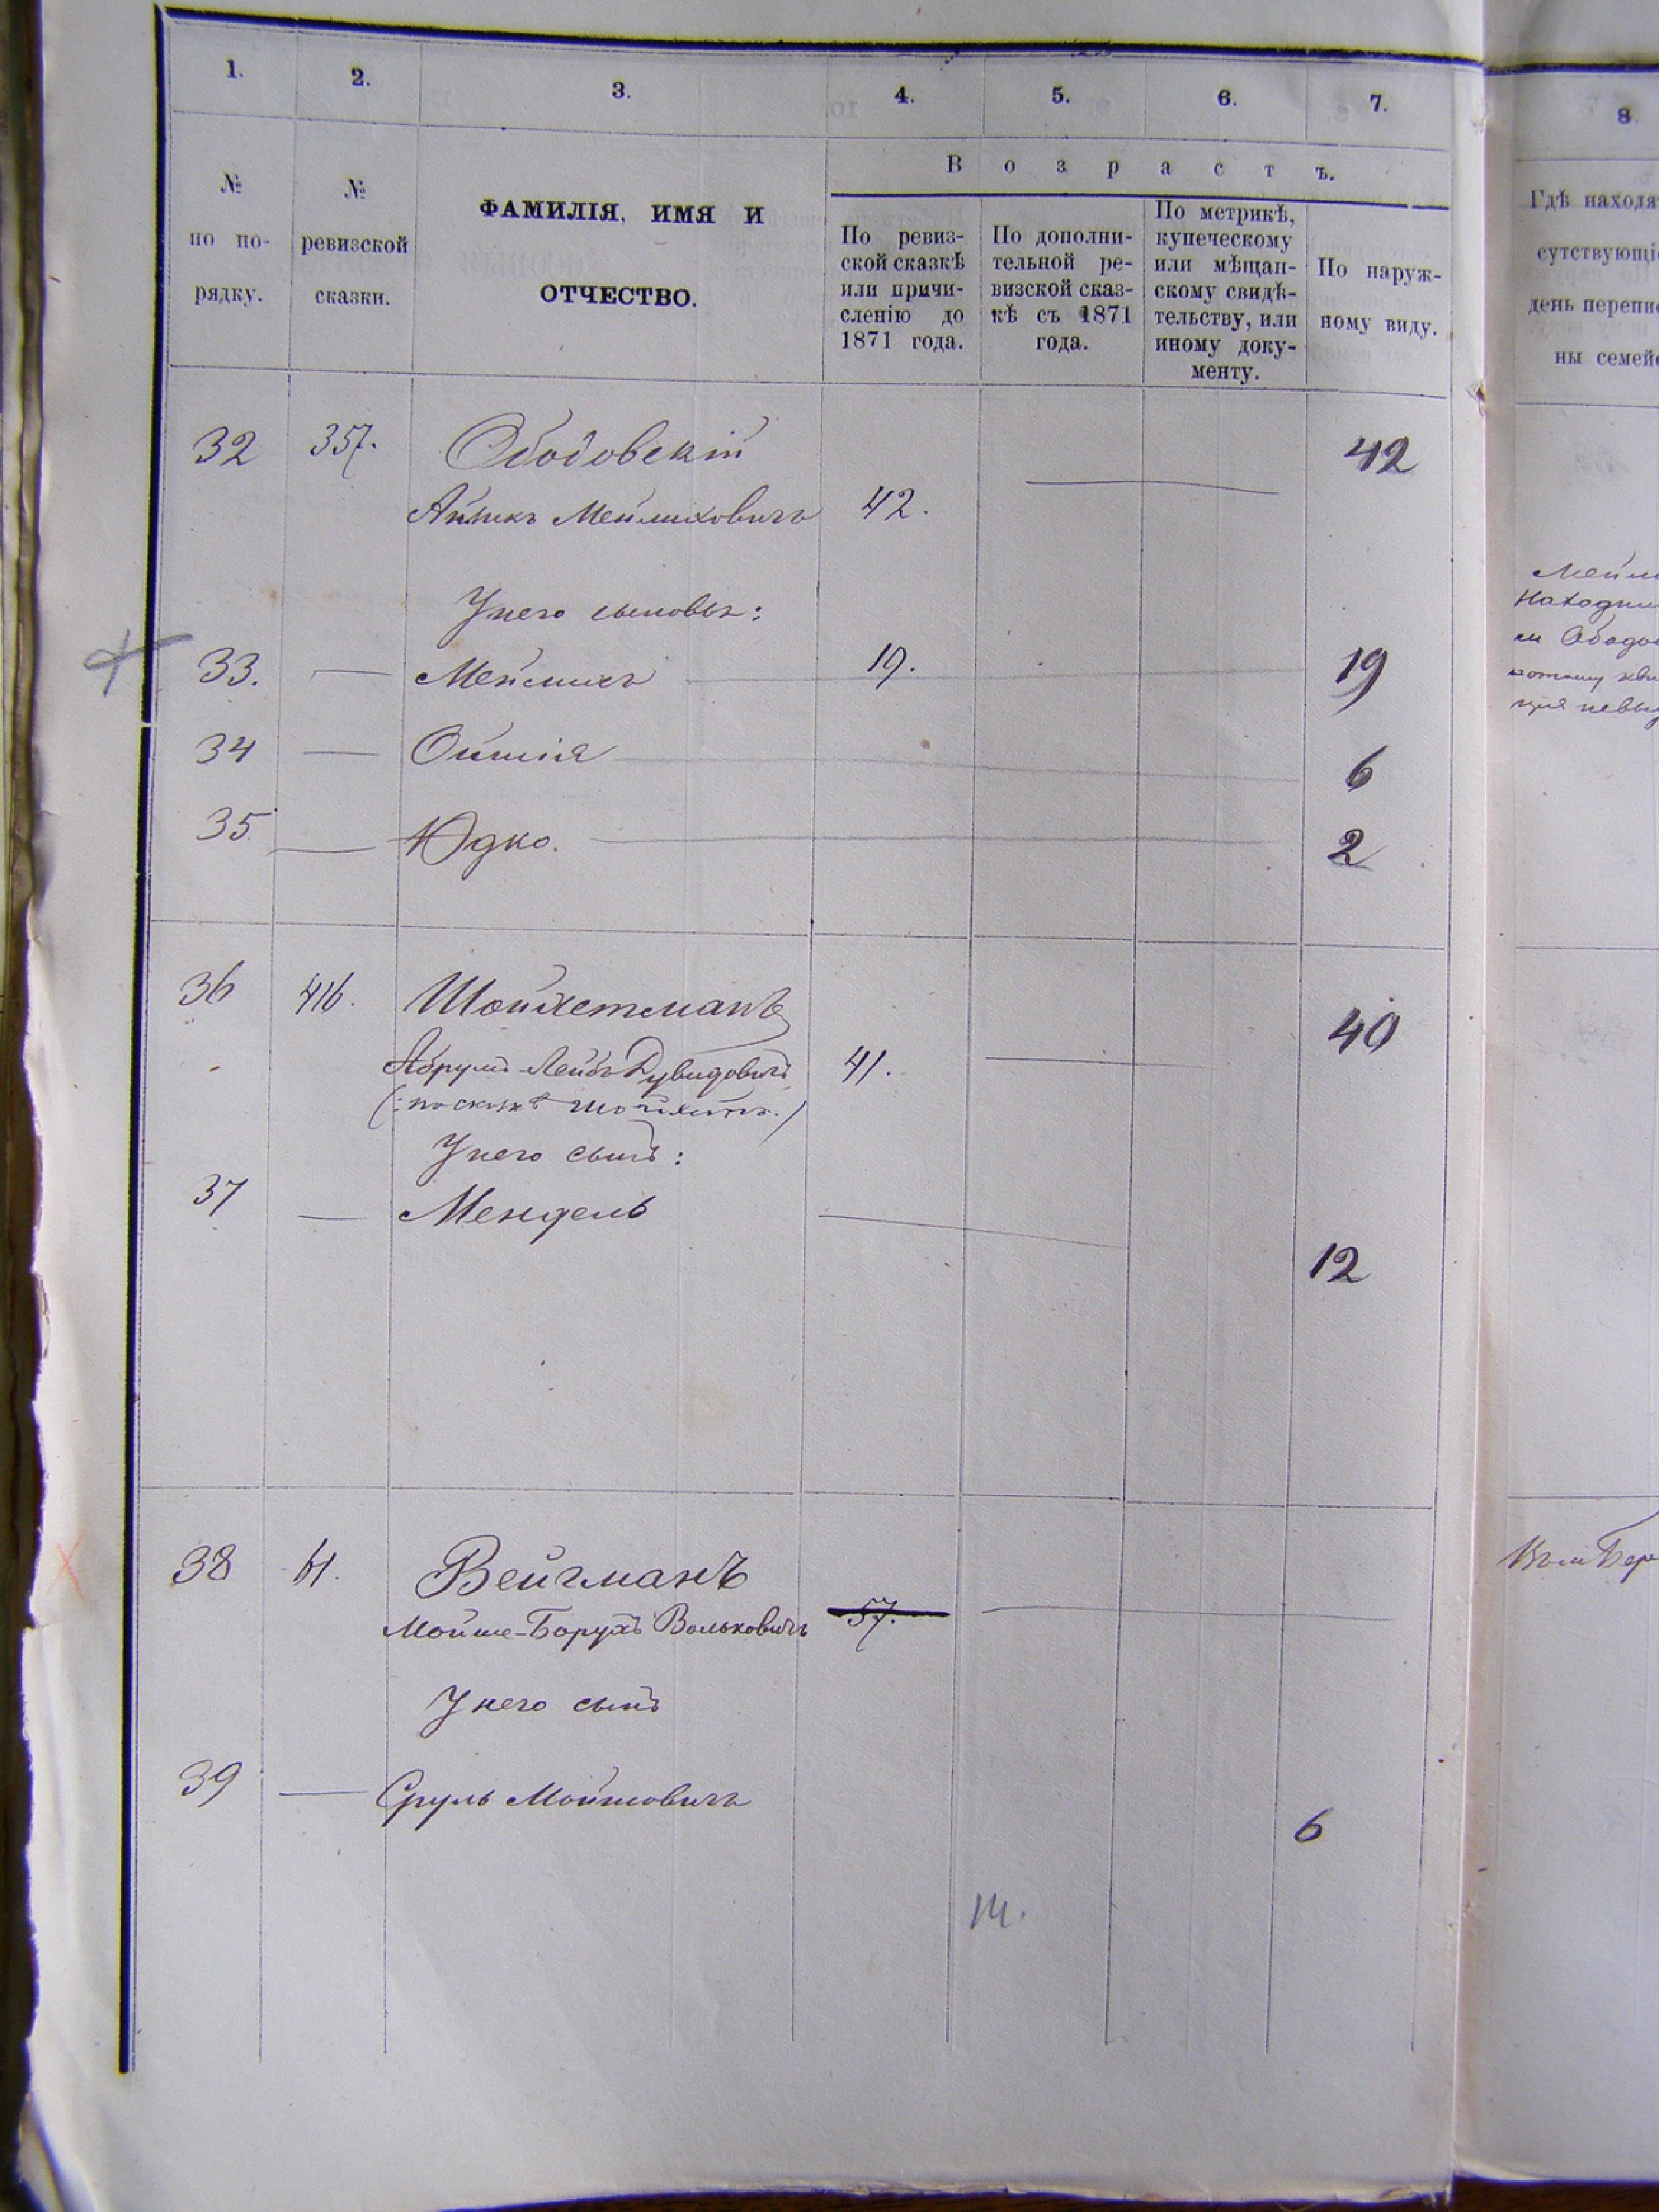 1. 2. 3. 4. 5. 6. 7. 8.
В о з р а с т ъ.
№ по по- рядку.
№ ревизской сказки.
ФАМИЛІЯ, ИМЯ И
ОТЧЕСТВО.
По ревиз-
ской сказкѣ
или причи-
сленію до
1871 года.
По дополни-
тельной ре-
визской сказ-
кѣ съ 1871
года.
По метрикѣ,
купеческому
или мѣщан-
скому свидѣ-
тельству, или
иному доку-
менту.
По наруж-
ному виду.
Гдѣ находя
сутствующі
день перепи
ны семей
32 357. Ободовскій 42
Айзикъ Мейлиховичъ 42.
У него сыновья:
33. — Мейлихъ 19. 19
34 — Ойшія 6
35. — Юдко. 2
36 416. Шойхетманъ 40
Абрумъ-Лейбъ Дувидовичъ 41.
(: по сказкѣ Шойхетъ.)
У него сынъ:
37 — Мендель
12
38 61. Вейгманъ
Мойше-Борухъ Вольковичъ 57.
У него сынъ
39 — Сруль Мойшовичъ
6